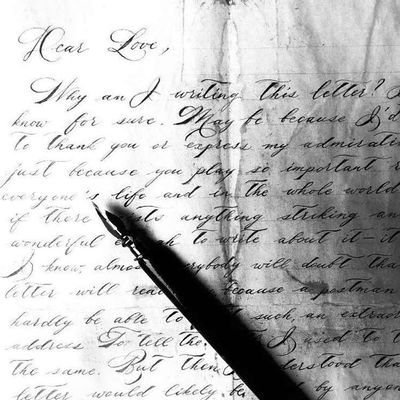 Dear Love,
Why am I writing this letter? I
know for sure. May be because I'd
to thank you or express my admirati
just because you play so important r
everyone's life and in the whole world
if there anything striking an
wonderful to write about it - it
I know, almos rybody will doubt tha
letter will rea because a postman
hardly be able to such an extraor
address. To tell th I used to t
the same. But then derstood tha
letter would likely be by anyon